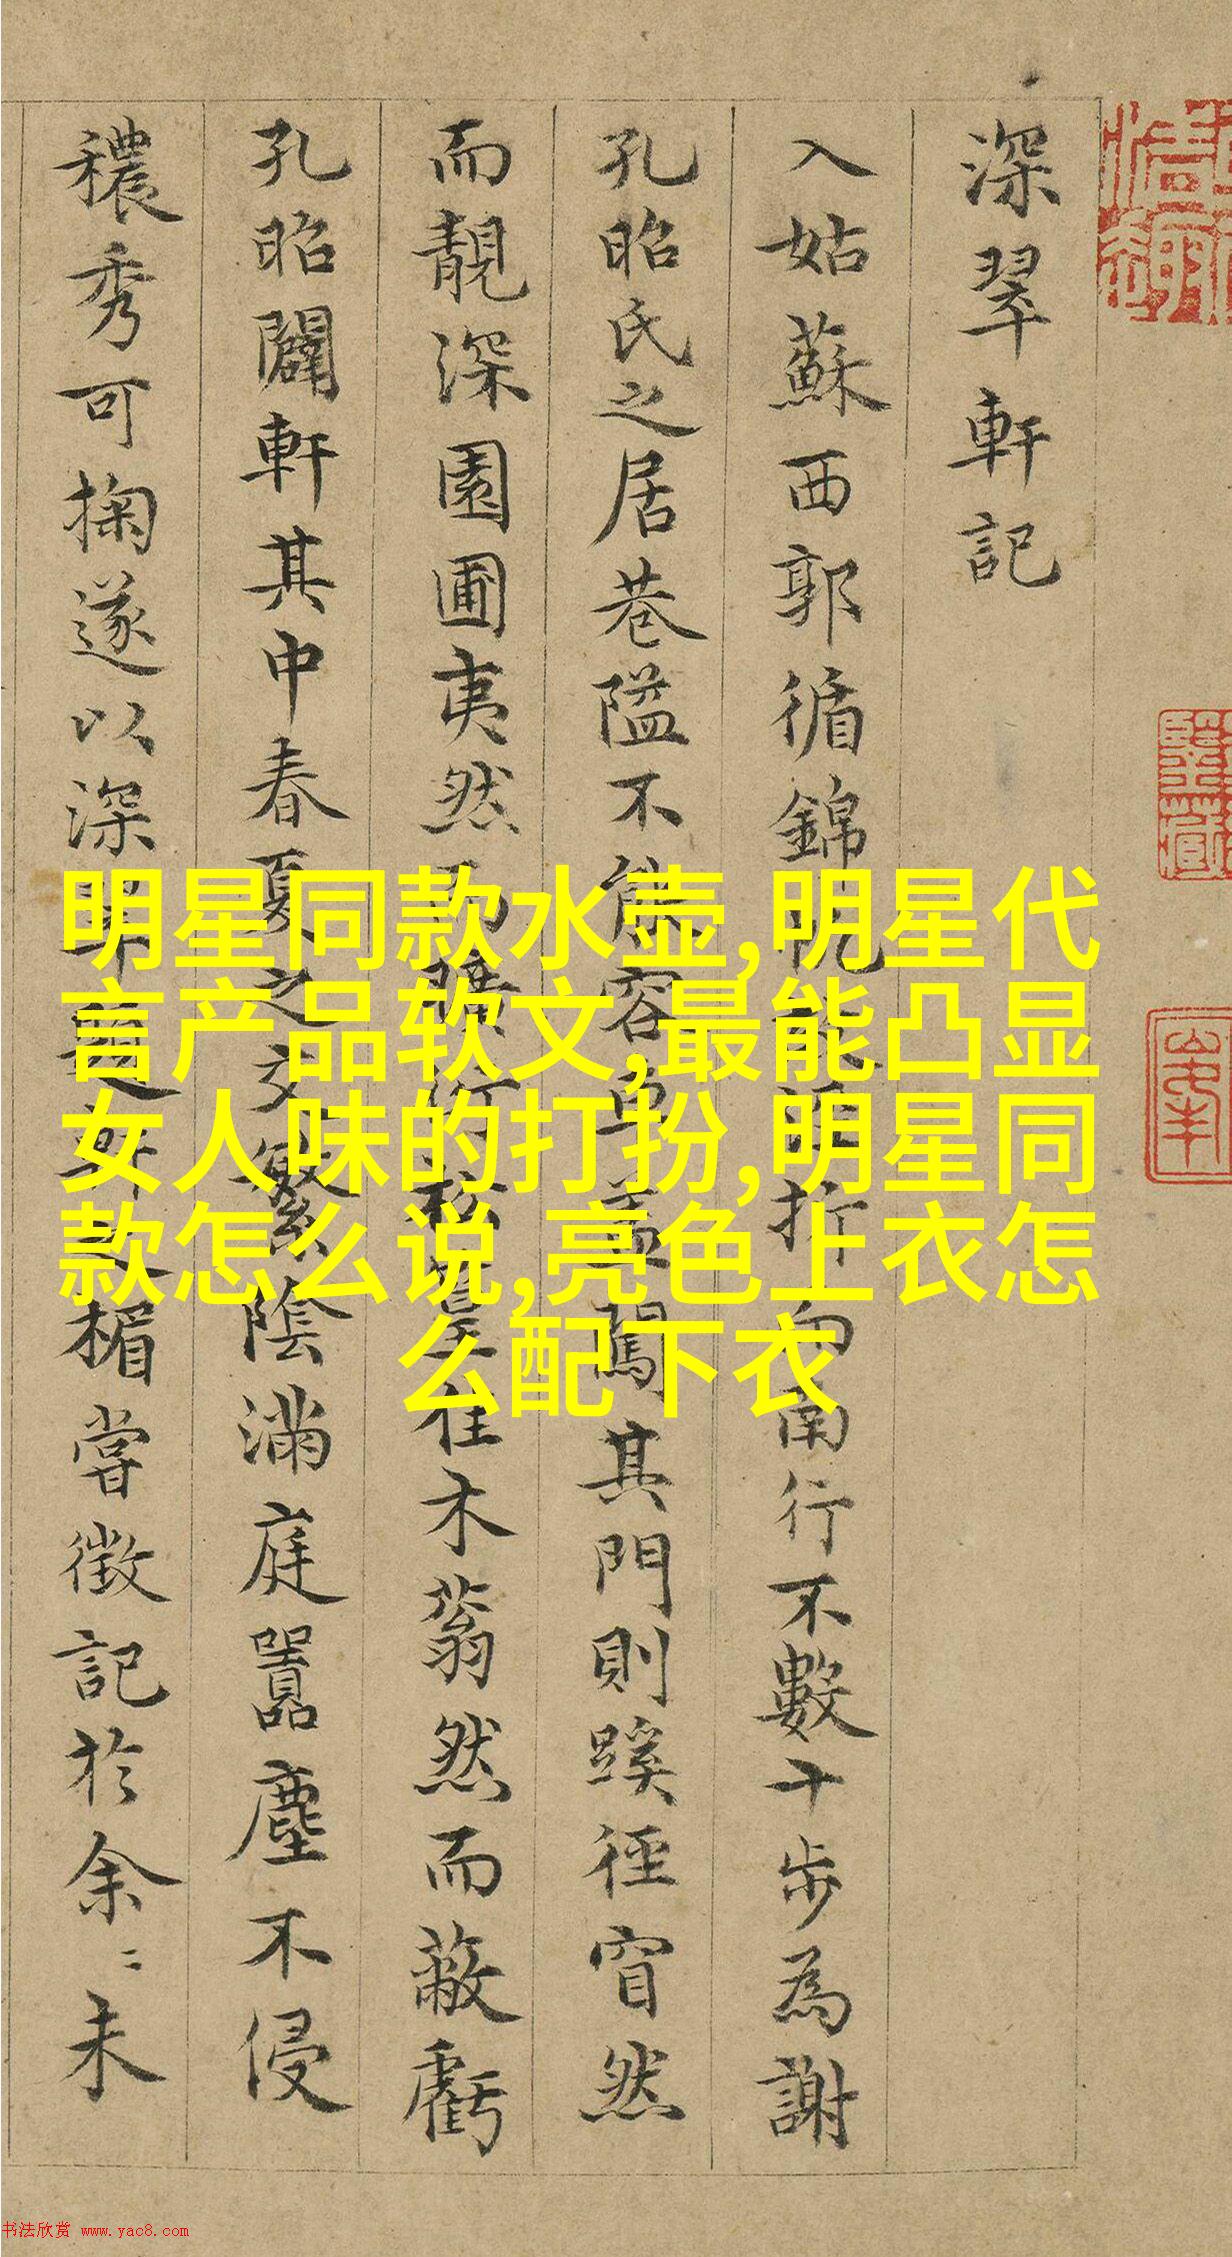 深翠軒記
入姑蘇西郭循錦帆涇折而南行不數十步為謝
孔昭氏之居巷隘不能容車蓋闖其門則蹊徑窅然
而靚深園圃夷然而曠竹松荃隹木蓊然而蔽虧
孔昭闢軒其中春夏之交繁陰滿庭囂塵不侵
穠秀可掬遂以深翠題軒之楣嘗徵記於余余未
明星同款水壶,明星代
言产品软文,最能凸显
女人味的打扮,明星同
款怎么说,亮色上衣怎
么配下衣
书法欣赏 www.yac8.com